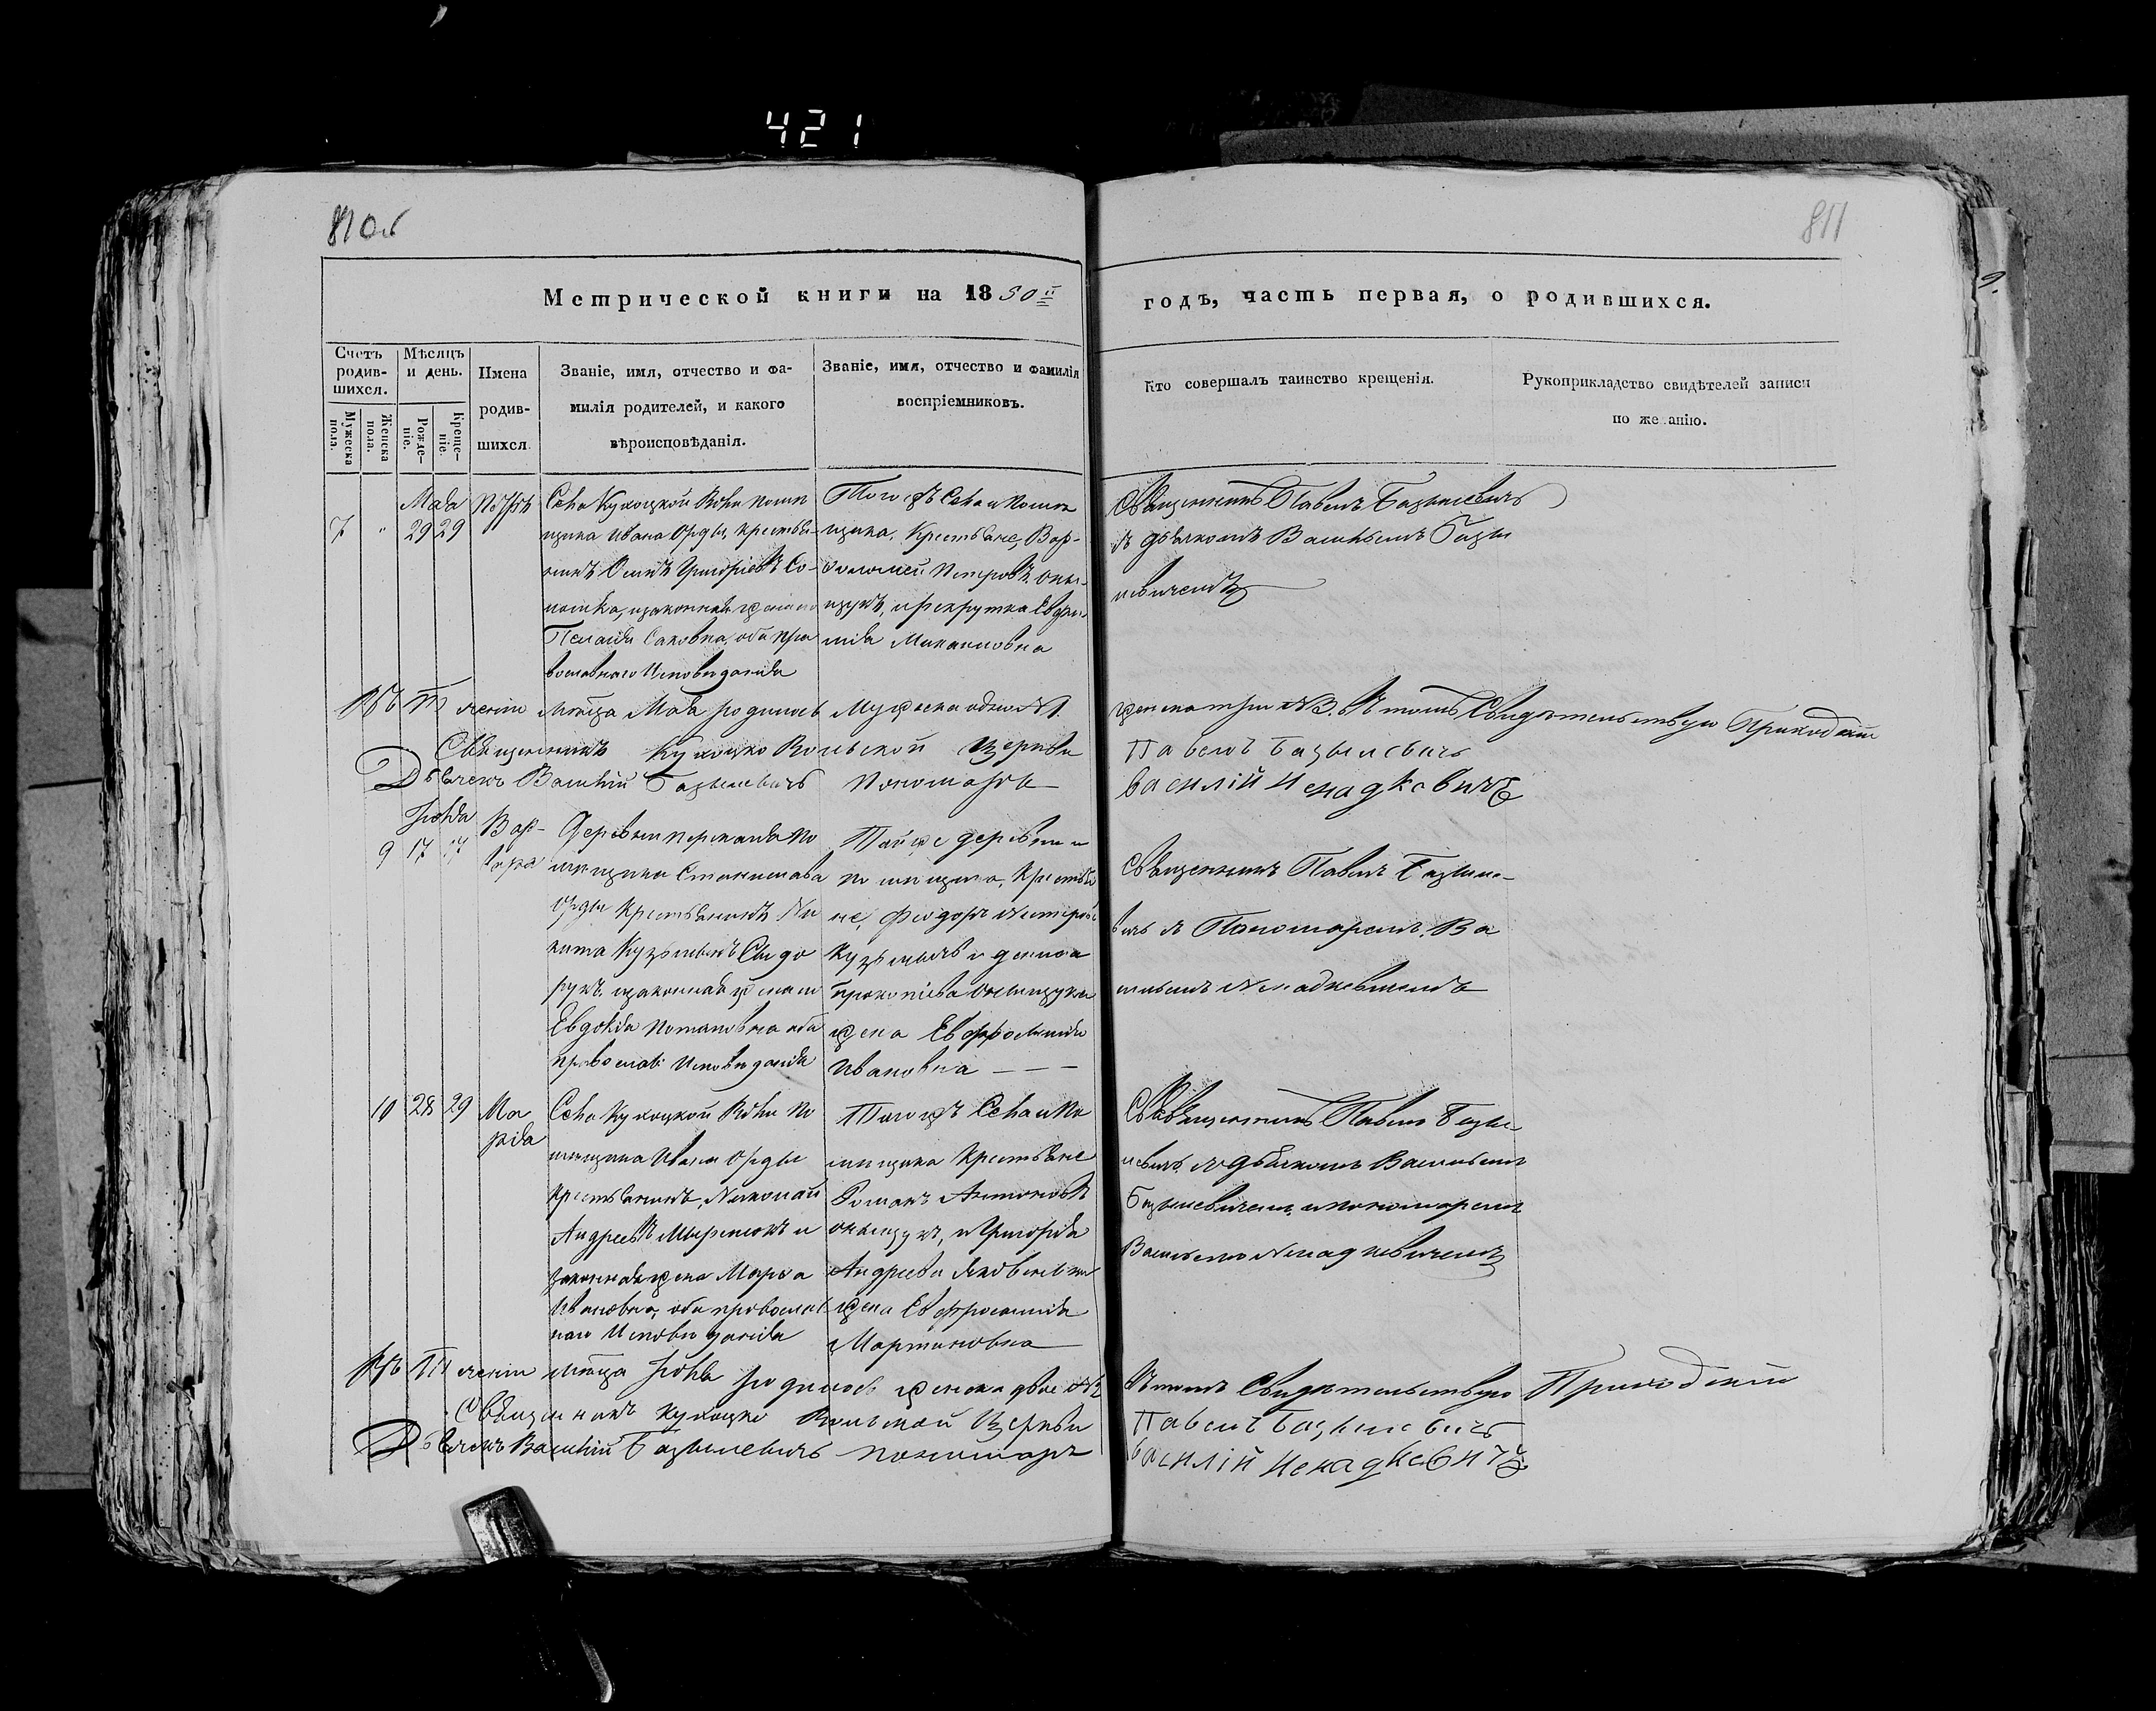 421
810об
811
9.
Метрической книги на 1850й
годъ, часть первая, о родившихся.
Счетъ родив-шихся.
Мужеска пола.
Женска пола.
Мѣсяцъ и день.
Рожде-ніе.
Креще-ніе.
Имена
родив-
шихся.
Званіе, имя, отчество и фа-
милія родителей, и какого
вѣроисповѣданія.
Званіе, имя, отчество и фамилія
воспріемниковъ.
Кто совершалъ таинство крещенія.
Рукоприкладство свидѣтелей записи
по же анію.
7 " Мая 29 29
Села Кухоцкой Воли помѣ
щика Ивана Орды, крестья-
нинъ Григоріевъ Со-
законная жена его
Пелагія Саковна, оба пра
вославнаго Исповѣданія
Тогожъ Села и помѣ
щика, Крестьяне, Вар-
фоломей Петровъ
Михаиловна
Священникъ Павелъ Базылевичь
съ дьячкомъ Васильемъ Базы
левичемъ
Въ Теченіи мѣсяца Мая родилось Мужеска одно №1.
женска три №3. Въ томъ Свидѣтельствую Приходскій
Священникъ Кухоцко Вольской Церкви
Павелъ Базылевичъ
Дьячекъ Василій Базылевичь Пономарь
Василій Ненадкевичъ
Іюня
9 17 17
Вар-
вара
Деревни по
мѣщика Станислава
Орды Крестьянинъ Ни
кита Кузьминъ Сидо
рукъ, законная жена его
Евдокія Потаповна оба
православ: Исповѣданія
Тойже деревни и
помѣщика, Крестья
не, Феодоръ Нестеровъ
Прокопіева
жена Евфросинія
Ивановна
Священникъ Павелъ Базыле-
вичь съ Пономаремъ Ва
сильемъ Ненадкевичемъ
10 28 29
Ма
рія
Села Кухоцкой Воли по
мѣщика Ивана Орды
Крестьянинъ, Николай
Андреевъ и
законная жена Марѳа
Ивановна, оба православ
наго Исповѣданія
Тогожъ Села и по
мѣщика Крестьяне
Романъ Антоновъ
и Григорія
Андреева
жена Евфросинія
Мартиновна
Священникъ Павелъ Базы
левичь съ дьячкомъ Васильемъ
Базылевичемъ и пономаремъ
Васильемъ Ненадкевичемъ
Въ Теченіи мѣсяца Іюня родилось женска двое №2
Въ томъ Свидѣтельствую Приходскій
Священникъ Кухоцко Вольской Церкви
Павелъ Базылевичъ
Дьячекъ Василій Базылевичь пономарь
Василій Ненадкевичъ